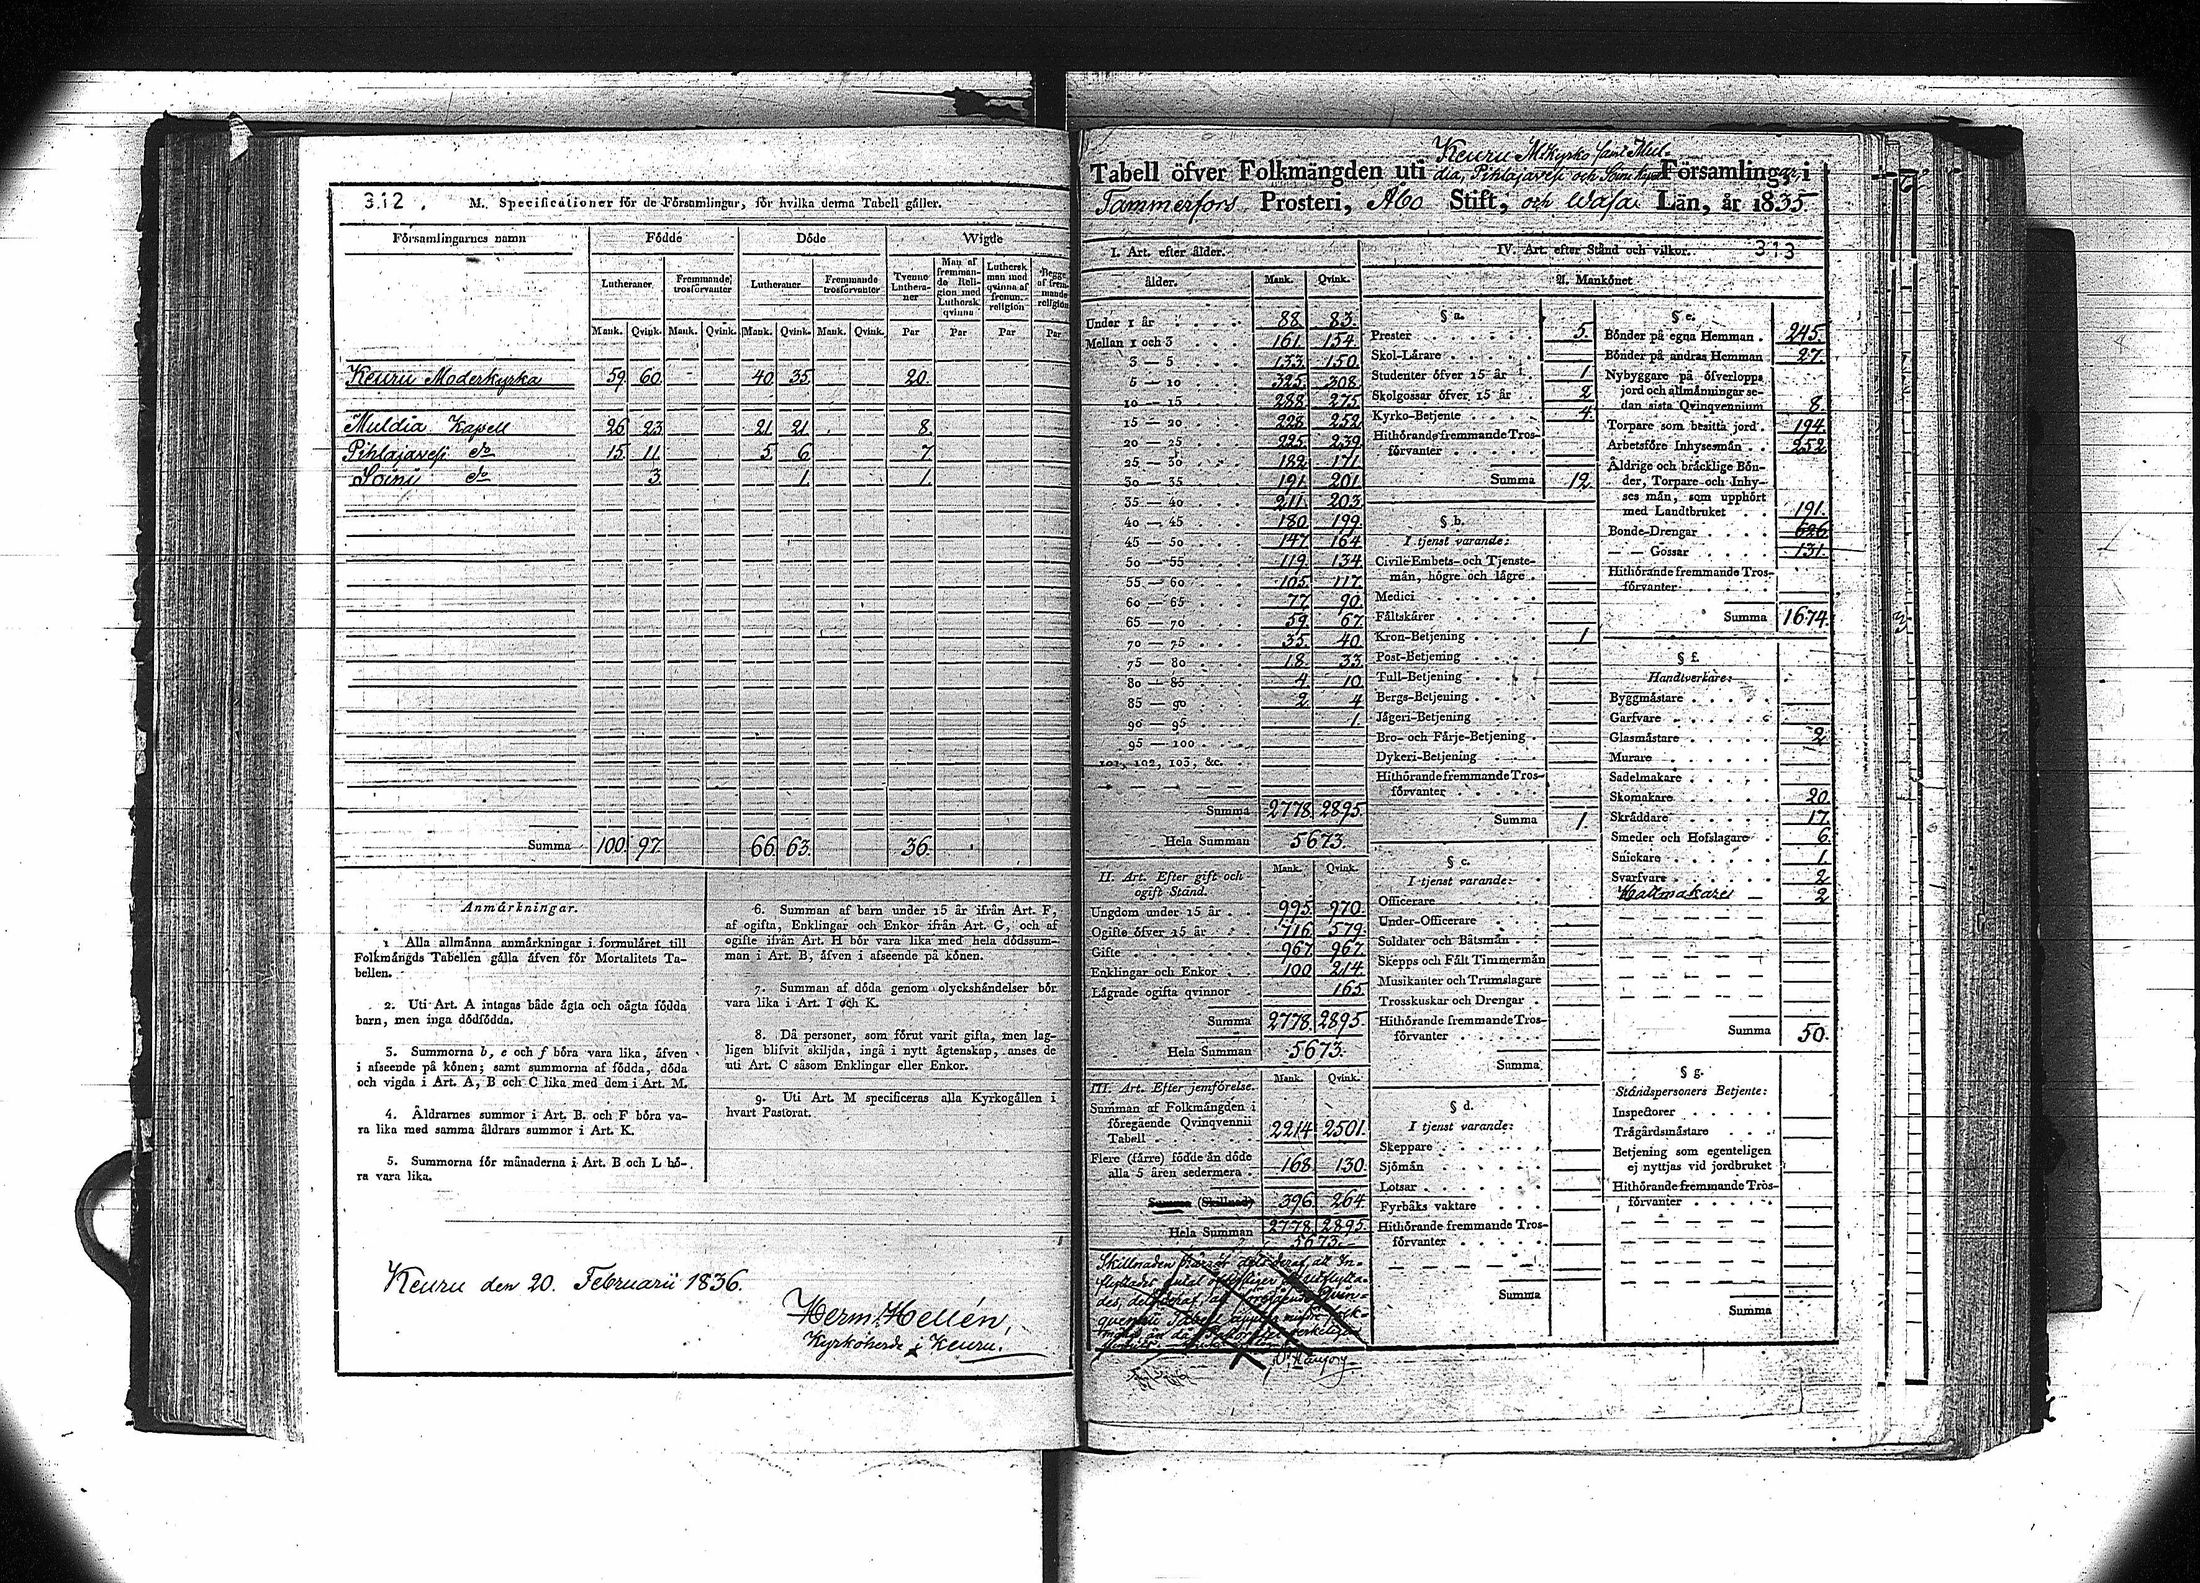 312.
M. Specificationer för de Församlingar, för hvilka denna Tabell gäller.
Församlingarnes namn Födde Döde Wigde
Lutheraner Fremmande trosförvanter Lutheraner Fremmande trosförvanter Tvenne Lutheraner Man af fremmande Religion med Luthersk qvinna Luthersk man med qvinna af fremm. religion Begge af fremmande religion
Mank. Qvink. Mank. Qvink. Mank. Qvink. Mank. Qvink. Par Par Par Par
Keuru Moderkyrka 59 60 40 35 20.
Muldia Kapell 26 23 21 21 8.
Pihlajavesi do 15 11 5 6 7
Soini do 3. 1. 1.
Summa 100 97. 66 63. 36.
Anmärkningar.
1. Alla allmänna anmärkningar i formuläret till
Folkmängds Tabellen gälla äfven för Mortalitets Ta-
bellen.
2. Uti Art. A intagas både ägta och oägta födda
barn, men inga dödfödda.
3. Summorna b, e och f böra vara lika, äfven
i afseende på könen; samt summorna af födda, döda
och vigda i Art. A, B och C lika med dem i Art. M.
4. Åldrarnes summor i Art. B. och F böra va-
ra lika med samma åldrars summor i Art. K.
5. Summorna för månaderna i Art. B och L bö-
ra vara lika.
6. Summan af barn under 15 år ifrån Art. F,
af ogifta, Enklingar och Enkor ifrån Art. G, och af
ogifte ifrån Art. H bör vara lika med hela dödssum-
man i Art. B, äfven i afseende på könen.
7. Summan af döda genom olyckshändelser bör
vara lika i Art. I och K.
8. Då personer, som förut varit gifta, men lag-
ligen blifvit skiljda, ingå i nytt ägtenskap, anses de
uti Art. C såsom Enklingar eller Enkor.
9. Uti Art. M specificeras alla Kyrkogällen i
hvart Pastorat.
Keuru den 20. Februarii 1836.
Herm. Hellén,
Kyrkoherde i Keuru.
Keuru M:kyrko samt Mul-
Tabell öfver Folkmängden uti dia, Pihlajavesi och Soini Församlingar i
Tammerfors Prosteri, Åbo Stift, och Wasa Län, år 1835
313
I. Art. efter ålder.
ålder. Mank. Qvink.
Under 1 år 88 83.
Mellan 1 och 3 161. 154.
3 — 5 133. 150.
5 — 10 325. 308.
10 — 15 288. 275
15 — 20 228. 252
20 — 25 225. 239.
25 — 30 182. 171
30 — 35 191. 201.
35 — 40 211. 203.
40 — 45 180. 199.
45 — 50 147. 164
50 — 55 119. 134
55 — 60 105. 117.
60 — 65 77. 90.
65 — 70 59. 67.
70 — 75 35. 40.
75 — 80 18. 33.
80 — 85 4 10
85 — 90 2 4
90 — 95 1.
95 — 100
101, 102, 103, &c.
Summa 2778. 2895.
Hela Summan 5673.
II. Art. Efter gift och
ogift Stånd.
Mank. Qvink.
Ungdom under 15 år 995. 970.
Ogifte öfver 15 år 716. 579.
Gifte 967. 967.
Enklingar och Enkor 100 214.
Lägrade ogifta qvinnor 165
Summa 2778. 2895.
Hela Summan 5673.
III. Art. Efter jemförelse.
Mank. Qvink.
Summan af Folkmängden i
föregående Qvinqvennii
Tabell 2214 2501.
Flere (färre) födde än döde
alla 5 åren sedermera 168. 130.
Summa (Skillnad) 396. 264
Hela Summan 2778. 2895.
5673.
Skillnaden härrör dels deraf, at In-
IV. Art. efter Stånd och vilkor.
A. Mankönet
§ a.
Prester 5.
Skol-Lärare
Studenter öfver 15 år 1
Skolgossar öfver 15 år 2
Kyrko-Betjente 4.
Hithörande fremmande Tros-
förvanter
Summa 12.
§ b.
I tjenst varande:
Civile-Embets- och Tjenste-
män, högre och lägre
Medici
Fältskärer
Kron-Betjening 1
Post-Betjening
Tull-Betjening
Bergs-Betjening
Jägeri-Betjening
Bro- och Färje-Betjening
Dykeri-Betjening
Hithörande fremmande Tros-
förvanter
Summa 1.
§ c.
I tjenst varande:
Officerare
Under-Officerare
Soldater och Båtsmän
Skepps och Fält Timmermän
Musikanter och Trumslagare
Trosskuskar och Drengar
Hithörande fremmande Tros-
förvanter
Summa
§ d.
I tjenst varande:
Skeppare
Sjömän
Lotsar
Fyrbåks vaktare
Hithörande fremmande Tros-
förvanter
Summa
§ e.
Bönder på egna Hemman 245.
Bönder på andras Hemman 27.
Nybyggare på öfverlopps
jord och allmänningar se-
dan sista Qvinqvennium 8.
Torpare som besitta jord 194
Arbetsföre Inhysesmän 252
Åldrige och bräcklige Bön-
der, Torpare och Inhy-
ses män, som upphört
med Landtbruket 191.
Bonde-Drengar 626
— — Gossar 131.
Hithörande fremmande Tros-
förvanter
Summa 1674.
§ f.
Handtverkare:
Byggmästare
Garfvare
Glasmästare 2
Murare
Sadelmakare
Skomakare 20.
Skräddare 17.
Smeder och Hofslagare 6.
Snickare 1
Svarfvare 2
Hattmakare 2
Summa 50.
§ g.
Ståndspersoners Betjente:
Inspectorer
Trägårdsmästare
Betjening som egenteligen
ej nyttjas vid jordbruket
Hithörande fremmande Tros-
förvanter
Summa